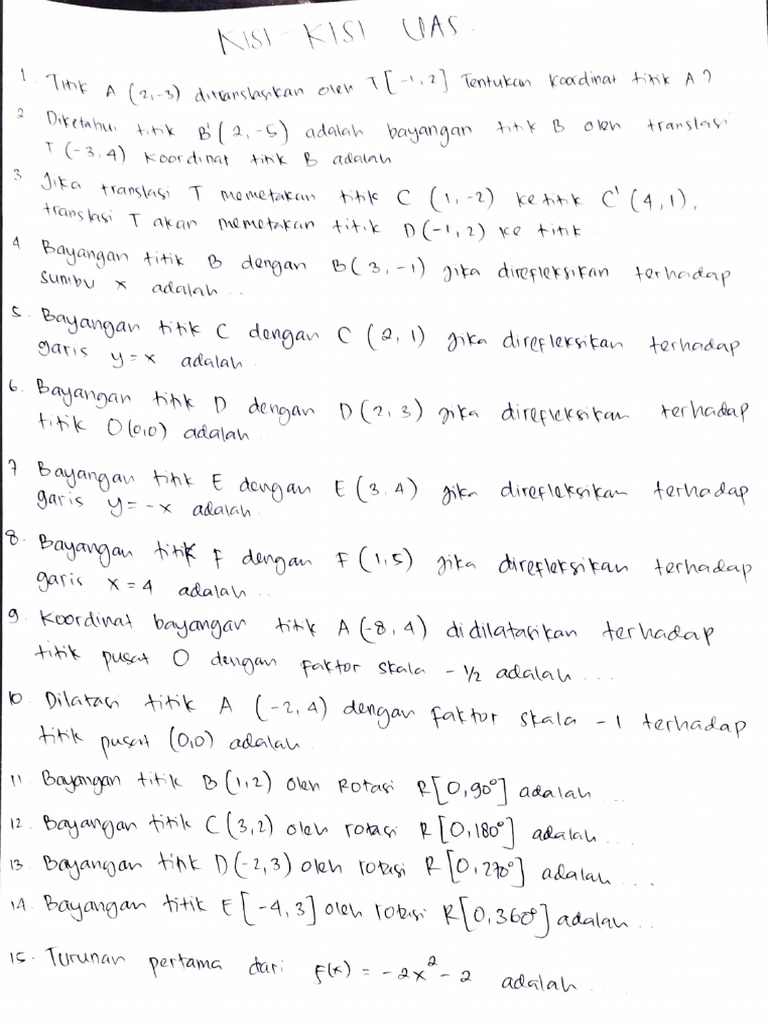 KISI-KISI UAS
1. Titik A (2,-3) ditranslasikan oleh T[-1,2] Tentukan koordinat titik A?
2 Diketahui titik B'(2,-5) adalah bayangan titik B oleh translasi
T(-3,4) koordinat titik B adalah
3 Jika translasi T memetakan titik C (1,-2) ke titik C'(4,1),
translasi T akan memetakan titik D(-1,2) ke titik
4 Bayangan titik B dengan B(3,-1) jika direfleksikan terhadap
sumbu x adalah ..
5. Bayangan titik C dengan C (2,1) jika direfleksikan terhadap
garis y=x adalah .
6. Bayangan titik D dengan D(2,3) jika direfleksikan terhadap
titik O(0,0) adalah ..
7 Bayangan titik E dengan E(3.4) jika direfleksikan terhadap
garis y=-x adalah.
8. Bayangan titik F dengan F(1,5) jika direfleksikan terhadap
garis x=4 adalah ..
9. Koordinat bayangan titik A(-8,4) didilatasikan terhadap
titik pusat O dengan faktor skala -1/2 adalah ...
10. Dilatasi titik A (-2,4) dengan faktor skala -1 terhadap
titik pusat (0,0) adalah ...
11 Bayangan titik B(1,2) oleh Rotasi R[0,90°] adalah ...
12. Bayangan titik C(3,2) oleh rotasi R[0,180°] adalah ...
13. Bayangan titik D(-2,3) oleh rotasi R[0,270°] adalah ....
14. Bayangan titik E[-4,3] oleh rotasi R[0,360°] adalah ...
15. Turunan pertama dari f(x) = -2x² - 2 adalah ....